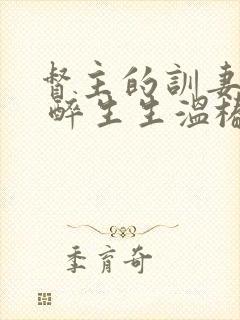 督主的訓妻
醉生生溫樁
季育奇